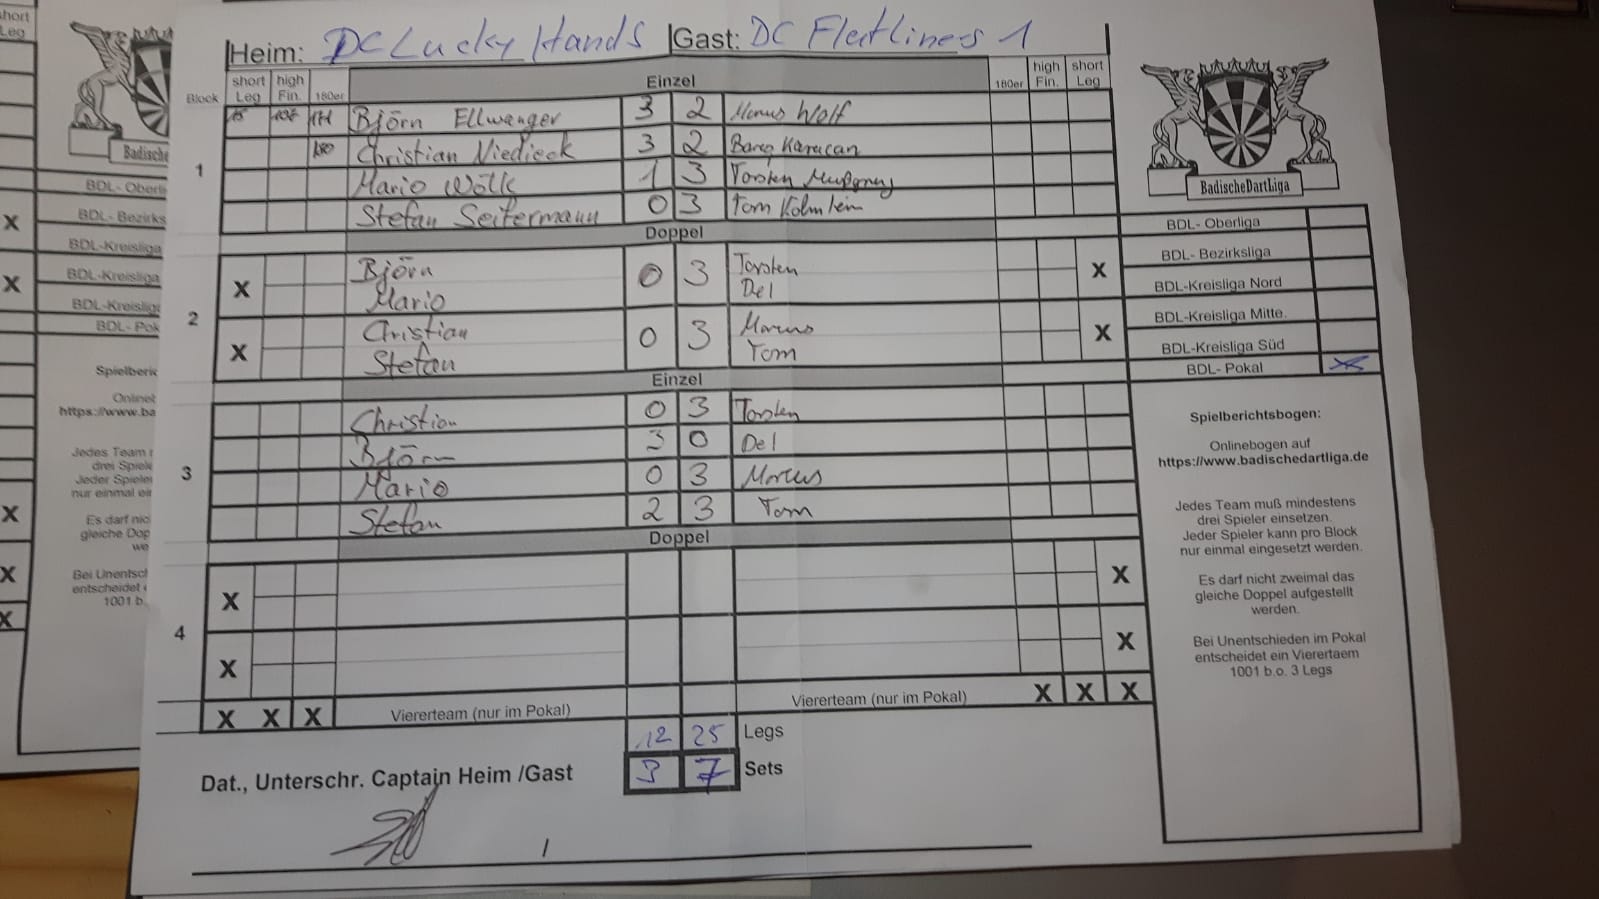 Heim: DC Lucky Hands Gast: DC Flatliners 1
Block short Leg high Fin. 180er Einzel 180er high Fin. short Leg
1
15 107 171 Björn Ellwanger 3 2 Marcus Wolf
180 Christian Niedieck 3 2 Karacan
Mario Wölk 1 3 Torsten
Stefan Seitermann 0 3 Tom
Doppel
2
X Björn Mario 0 3 Torsten Del X
X Christian Stefan 0 3 Marcus Tom X
Einzel
3
Christian 0 3 Torsten
Björn 3 0 Del
Mario 0 3 Marcus
Stefan 2 3 Tom
Doppel
4
X X
X X
X X X Viererteam (nur im Pokal) Viererteam (nur im Pokal) X X X
12 25 Legs
3 7 Sets
Dat., Unterschr. Captain Heim /Gast
/
BadischeDartLiga
BDL- Oberliga
BDL- Bezirksliga
BDL-Kreisliga Nord
BDL-Kreisliga Mitte.
BDL-Kreisliga Süd
BDL- Pokal X
Spielberichtsbogen:
Onlinebogen auf
https://www.badischedartliga.de
Jedes Team muß mindestens
drei Spieler einsetzen.
Jeder Spieler kann pro Block
nur einmal eingesetzt werden.
Es darf nicht zweimal das
gleiche Doppel aufgestellt
werden.
Bei Unentschieden im Pokal
entscheidet ein Vierertaem
1001 b.o. 3 Legs
short
Leg
Badische
BDL- Oberli
BDL- Bezirks
BDL-Kreisliga
BDL-Kreisliga
BDL-Kreislig
BDL- Pok
Spielberic
Onlinel
https://www.ba
Jedes Team
drei Spiele
Jeder Spiele
nur einmal ei
Es darf nic
gleiche Dop
we
Bei Unentsc
entscheidet
1001 b.
X
X
X
X
X